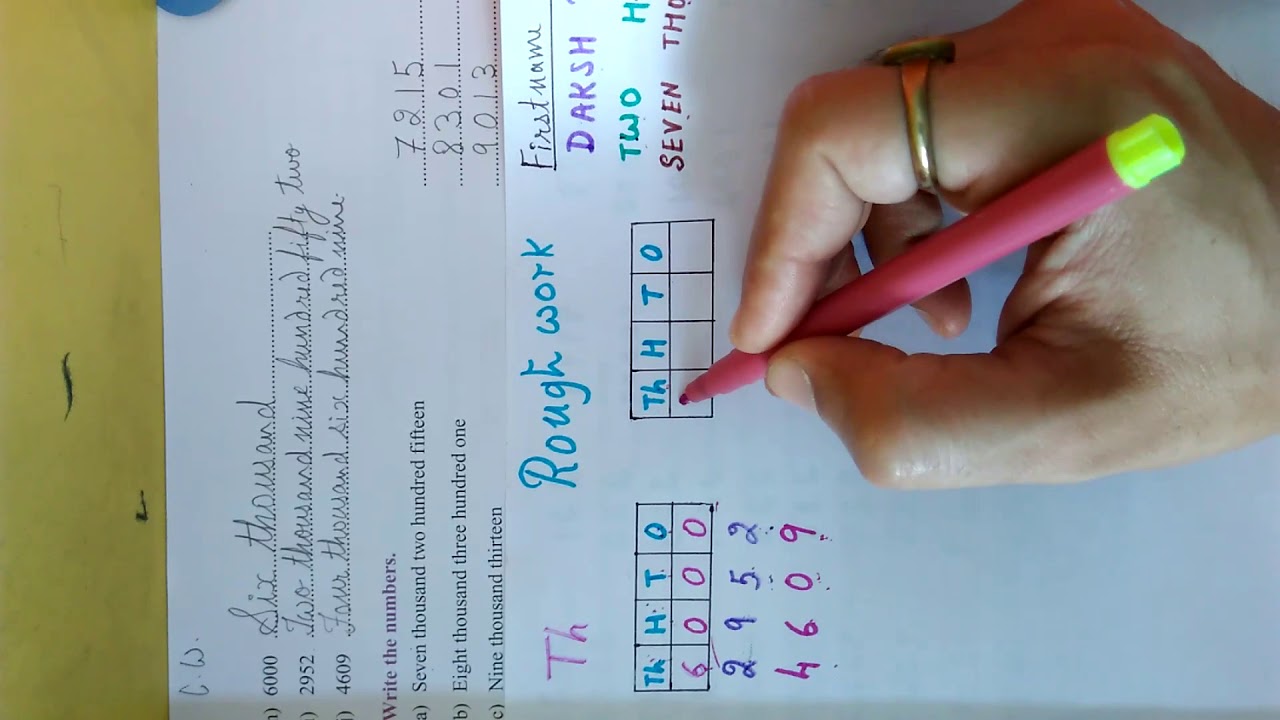 C.W.
6000 Six thousand
2952 Two thousand nine hundred fifty two
4609 Four thousand six hundred nine
Write the numbers.
a) Seven thousand two hundred fifteen 7215
b) Eight thousand three hundred one 8301
c) Nine thousand thirteen 9013
Th Rough work First name
DAKSH
TWO H
SEVEN THO
Th H T O
6 0 0 0
2 9 5 2
4 6 0 9
Th H T O